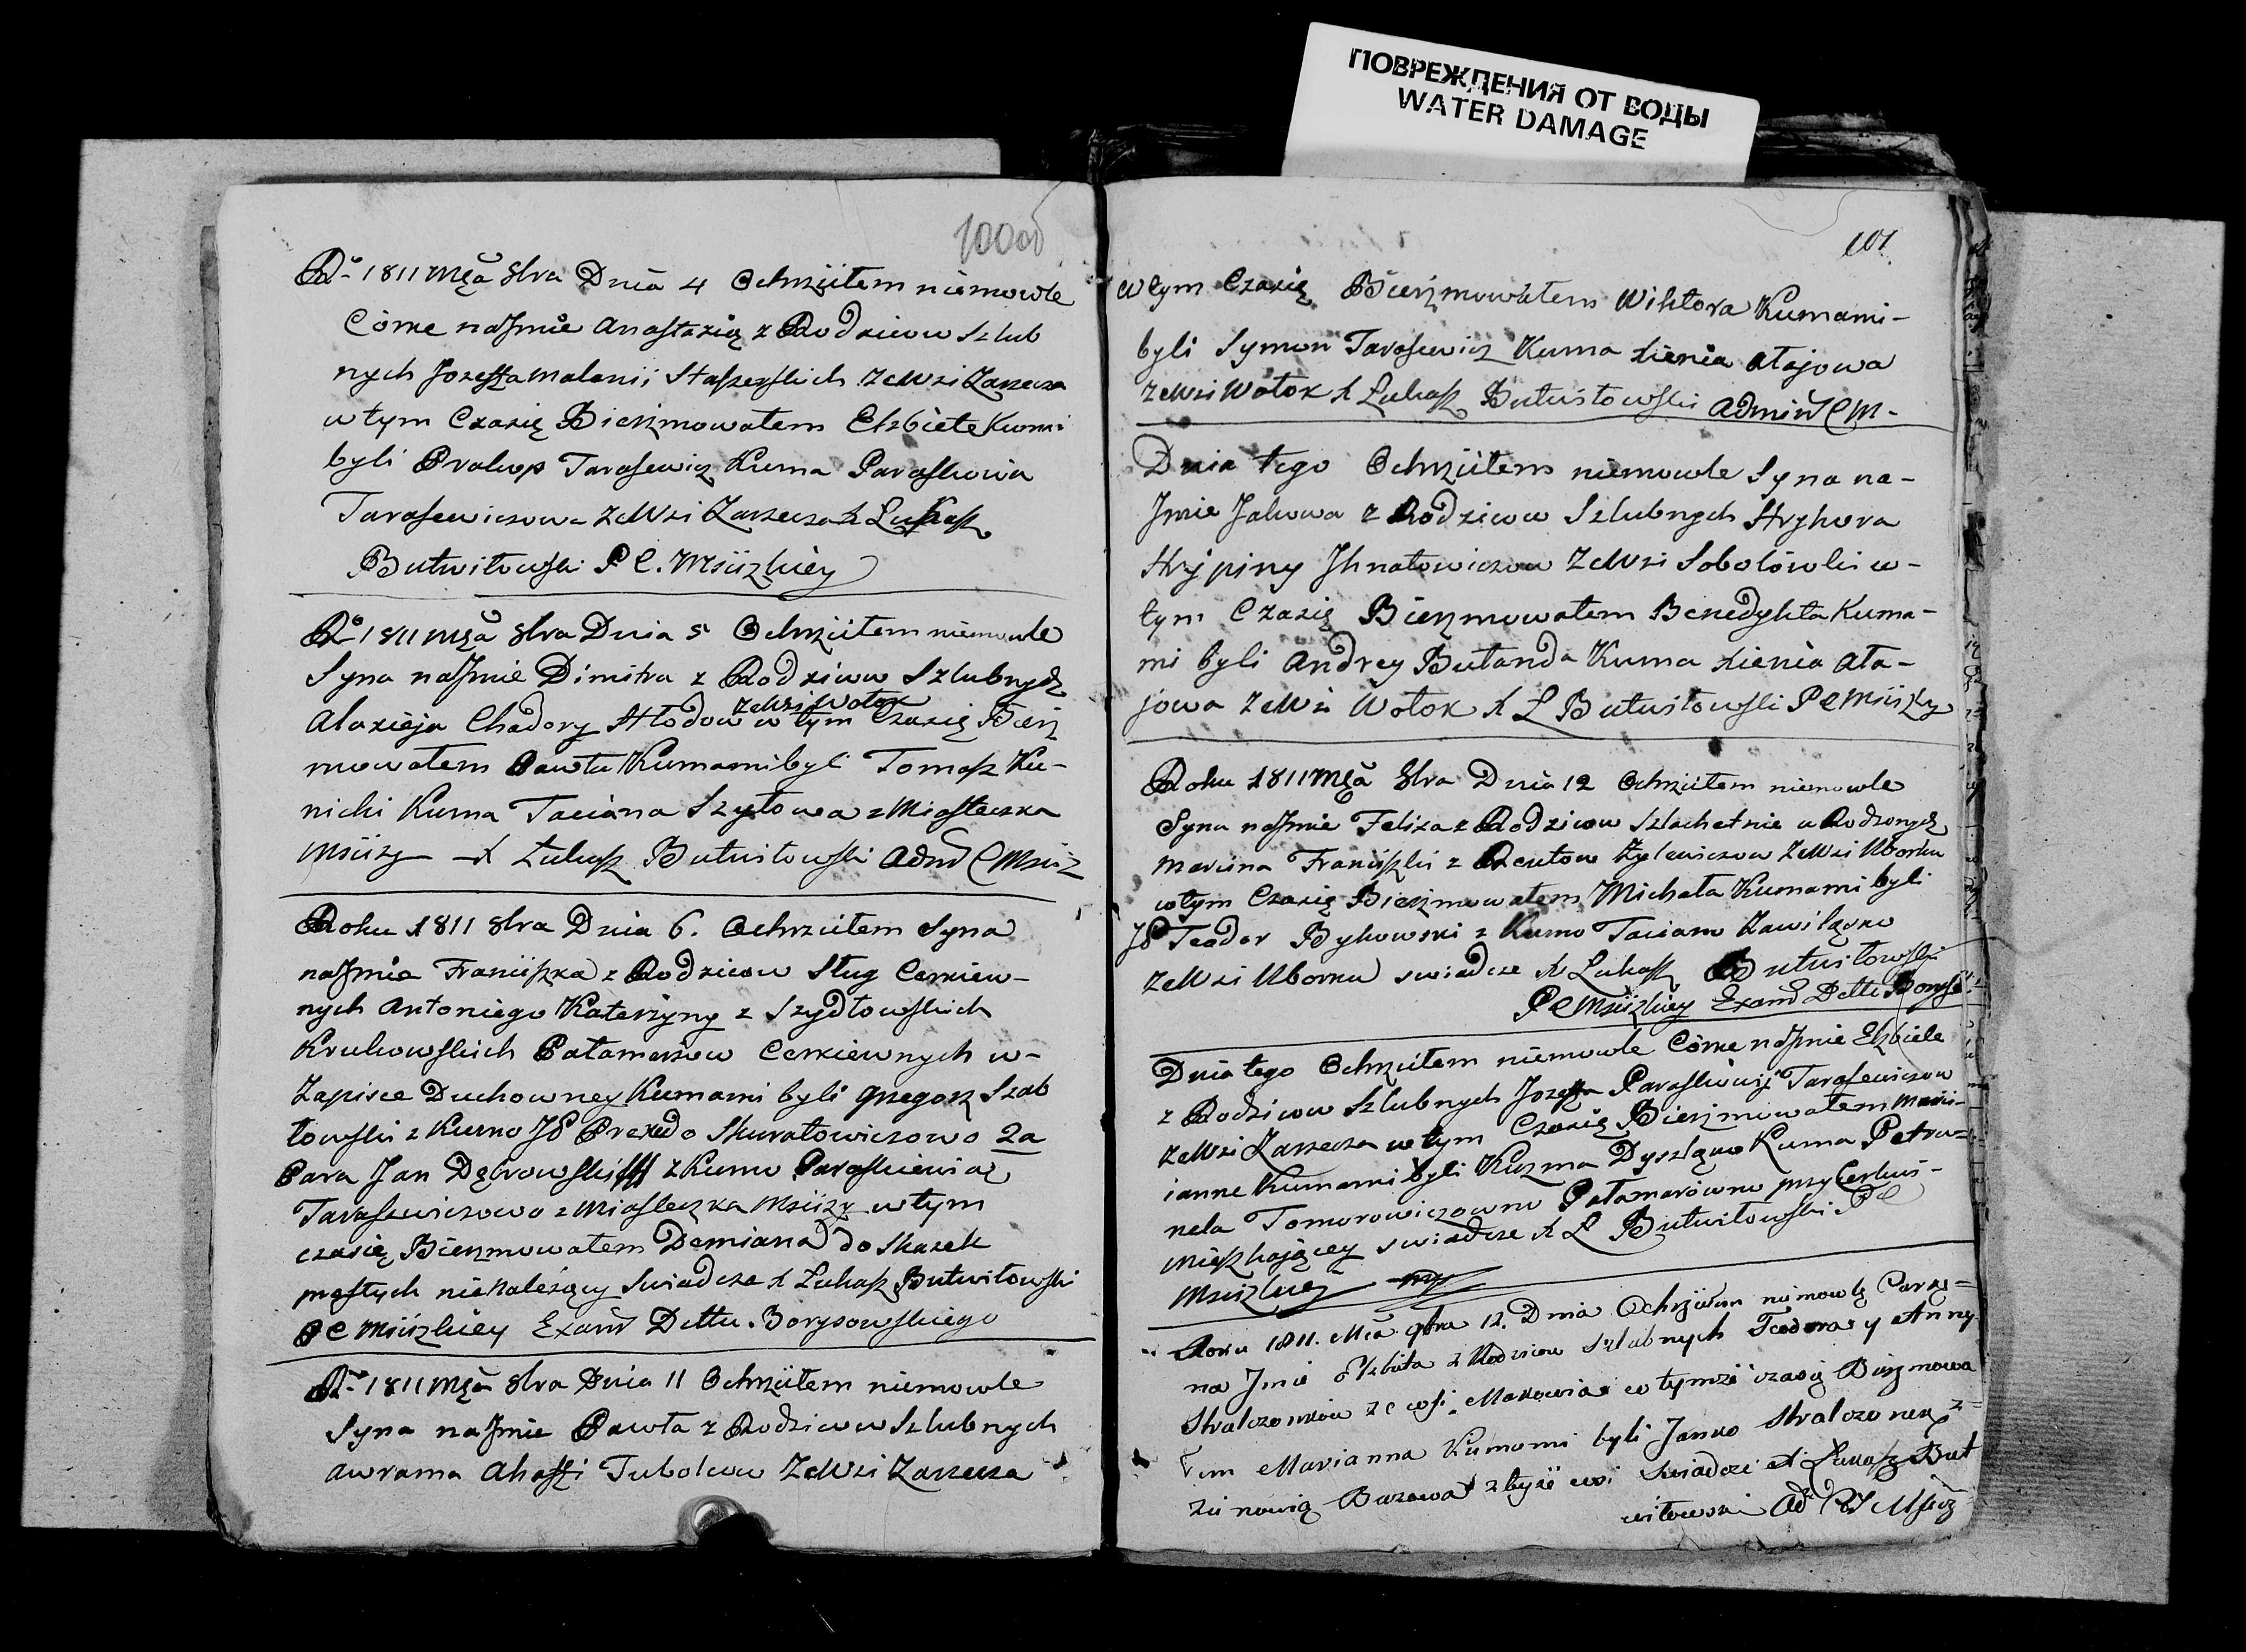 ПОВРЕЖДЕНИЯ ОТ ВОДЫ
WATER DAMAGE
100об
Rº 1811 Mca 8bra Dnia 4 Ochrzcilem niemowle
Córke na Jmie Anastazią z Rodzicow Szlub
nych Jozeffa Malanii Staszewskich ze Wsi Zarzecza
w tym Czasię Bierzmowałem Elzbiete Kumi
byli Prokop Tarasewicz Kuma Paraskowia
Tarasewiczowa ze Wsi Zarzecza X Łukasz
Butwiłowski P C. Msciżkiey
Rº 1811 Mca 8bra Dnia 5 Ochrzcilem niemowle
Syna na Jmie Dimitra z Rodzicow Szlubnych
ze Wsi Wołok
Alaxieja Chadory Hłodow w tym Czasię Bierz
mowałem Pawła Kumami byli Tomasz Ku-
nicki Kuma Taciana Szyłowa z Miasteczka
Msciży X Łukasz Butwiłowski Adm C Msciż
Roku 1811 8bra Dnia 6. Ochrzcilem Syna
na Jmie Franciszka z Rodzicow Sług Cerkiew-
nych Antoniego Katerzyny z Szydłowskich
Krukowskich Pałamarzow Cerkiewnych w-
Zapisce Duchowney Kumami byli Grzegorz Szab
łowski z Kumo JP Praxedo Skuratowiczowo 2a
Para Jan Dębrowski z Kumo Paraskiewią
Tarasewiczowo z Miasteczka Msciży w tym
czasię Bierzmowałem Demiana do skazek
prostych nienaleźący Swiadcze X Łukasz Butwiłowski
P C Msciżkiey Exam Dettu Borysowskiego
Rº 1811 Mca 8bra Dnia 11 Ochrzcilem niemowle
Syna na Jmie Pawła z Rodzicow Szlubnych
Awrama Ahaffi Tubolcow ze Wsi Zarzecza
101
w tym Czasię Bierzmowałem Wiktora Kumami-
byli Symon Tarasewicz Kuma Xienia Ałajowa
ze Wsi Wołok X Łukasz Butwiłowski Admin C M-
Dnia tego Ochrzcilem niemowle Syna na-
Jmie Jakowa z Rodzicow Szlubnych Hryhora
Hrypiny Jhnatowiczow ze Wsi Sobolówki w-
tym Czasię Bierzmowałem Benedykta Kuma-
mi byli Andrey Bułanda Kuma Xienia Ała-
jowa ze Wsi Wołok X Ł Butwiłowski P C Msciżky
Roku 1811 Mca 8bra Dnia 12 Ochrzcilem niemowle
Syna na Jmie Felixa z Rodzicow Szlachetnie u Rodzonych
Marcina Franciszki z Reutow Zylewiczow ze Wsi Uborku
w tym Czasię Bierzmowałem Michała Kumami byli
JP Teador Bykowski z Kumo Taciano
ze Wsi Uborku swiadcze X Łukasz Butwiłowski
P C Msciżkiey Exam Dettu Borys
Dnia tego Ochrzcilem niemowle Córke na Jmie Elzbiete
z Rodzicow Szlubnych Jozeffa Paraskiwij Tarasewiczow
ze Wsi Zarzecza w tym Czasię Bierzmowałem Mari-
ianne Kumami byli Kuzma Kuma Petru-
nela Tomorowiczowno Pałamarówno przy Cerkwi-
mieszkającey swiadcze X Ł Butwiłowski P C
Msciżkiey mp
Roku 1811. Mca 9bra 12. Dnia Ochrzciłem niemowlę Corkę=
na Jmie Elzbieta z Rodzicow szlubnych Teodora y Anny
Stralczonkow ze wsi Makowia w tymże czasię Bierzmowa
łem Marianna Kumami byli Janko Stralczonek z=
Zinowią z tyże wsi Swiadcze X Łukasz But
wiłowski Msciż